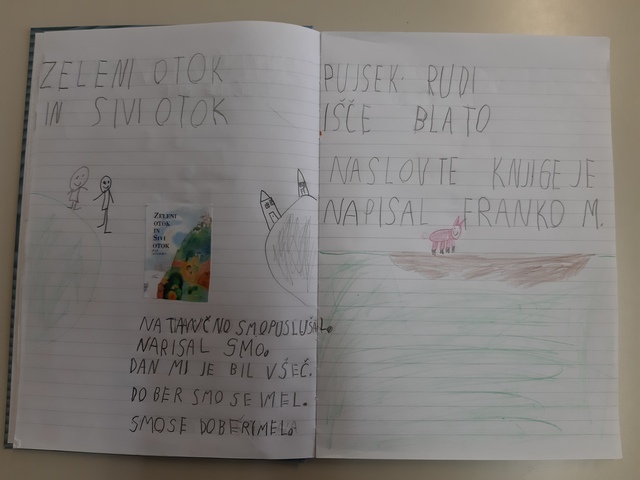 ZELENI OTOK
IN SIVI OTOK
ZELENI
OTOK
IN
SIVI
OTOK
NARISAL SMO.
DAN MI JE BIL VŠEČ.
DOBER SMO SE IMEL.
SMO SE DOBER IMELA
PUJSEK RUDI
IŠČE BLATO
NASLOV TE KNJIGE JE
NAPISAL FRANKO M.